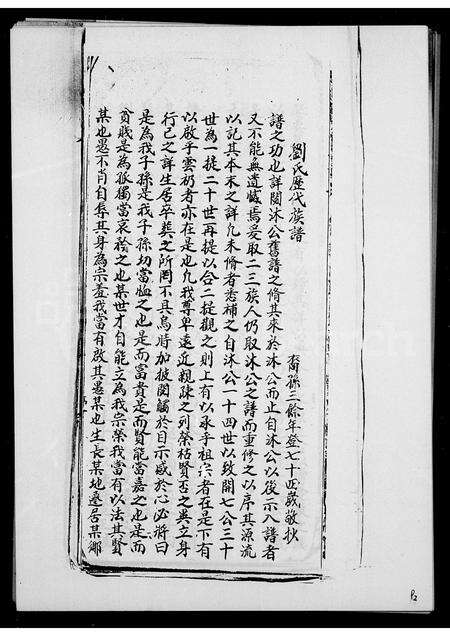 劉氏歷代族譜
裔孫三餘年登七十四歲敬抄
譜之功也詳閱沐公舊譜之脩其來於沐公而止自沐公以後示入譜者
又不能無遺憾焉爰取二三族人仍取沐公之譜而重修之以序其源流
以記其本末之詳凡未脩者悉補之自沐公一十四世以致開七公三十
世為一提二十世再提以合二提觀之則上有以承乎祖宗者在是下有
以啟乎雲礽者亦在是也凡我尊卑遠近親疎之列榮枯賢否之異立身
行己之詳生居卒葬之所罔不具焉時加披閱觸於目示感於心必將曰
是為我子孫是我子孫切當恤之也是而富貴是而賢能當嘉之也是而
貧賤是為孤獨當哀矜之也某世才自能立為我宗榮我當有以法其賢
某也愚不肖自辱其身為宗羞我當有啟其愚某也生長某地遷居某鄉
P2